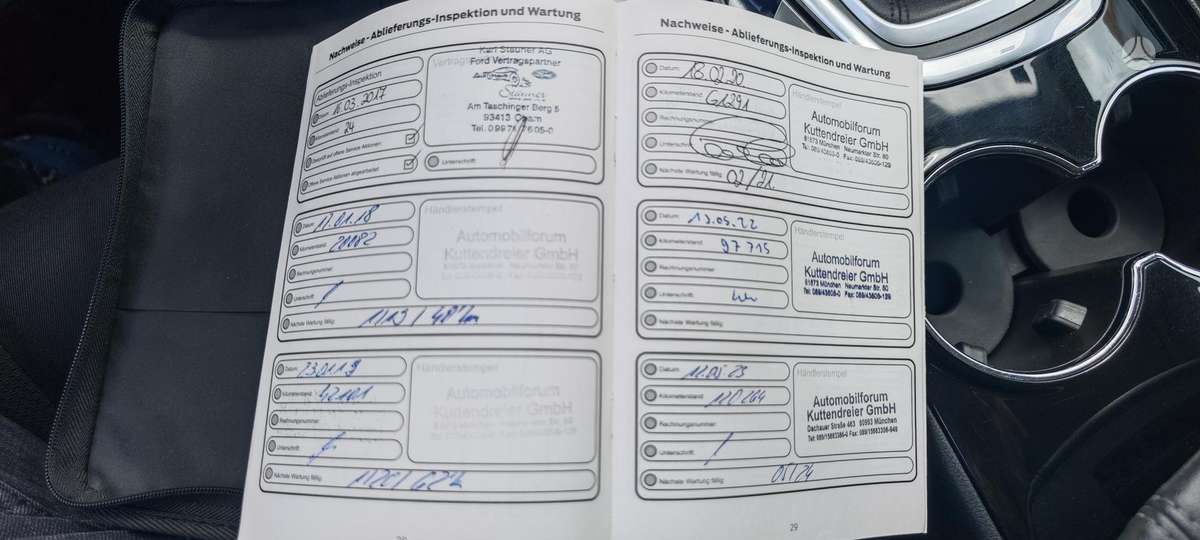 Nachweise - Ablieferungs-Inspektion und Wartung
Ablieferungs-Inspektion
Datum: 16.03.2017
Kilometerstand: 24
Offene Service Aktionen abgearbeitet
Karl Stauner AG
Ford Vertragspartner
Stauner
Am Taschinger Berg 5
93413 Cham
Unterschrift
Datum: 17.01.18
Kilometerstand:
Rechnungsnummer:
Unterschrift:
Nächste Wartung fällig:
Händlerstempel
Automobilforum
Kuttendreier GmbH
81673 München Neumarkter Str. 80
Datum: 23.01.19
Kilometerstand: 42101
Rechnungsnummer:
Unterschrift:
Nächste Wartung fällig:
Händlerstempel
Automobilforum
Kuttendreier GmbH
Nachweise - Ablieferungs-Inspektion und Wartung
Datum: 18.02.20
Kilometerstand: 61291
Rechnungsnummer:
Unterschrift:
Nächste Wartung fällig: 02/21
Händlerstempel
Automobilforum
Kuttendreier GmbH
81673 München Neumarkter Str. 80
Tel: 089/43606-0 Fax: 089/43606-129
Datum: 13.05.22
Kilometerstand: 97715
Rechnungsnummer:
Unterschrift:
Nächste Wartung fällig:
Händlerstempel
Automobilforum
Kuttendreier GmbH
81673 München Neumarkter Str. 80
Tel: 089/43606-0 Fax: 089/43606-129
Datum: 11.05.23
Kilometerstand: 120264
Rechnungsnummer:
Unterschrift:
Nächste Wartung fällig: 05/24
Händlerstempel
Automobilforum
Kuttendreier GmbH
Dachauer Straße 463 80993 München
29